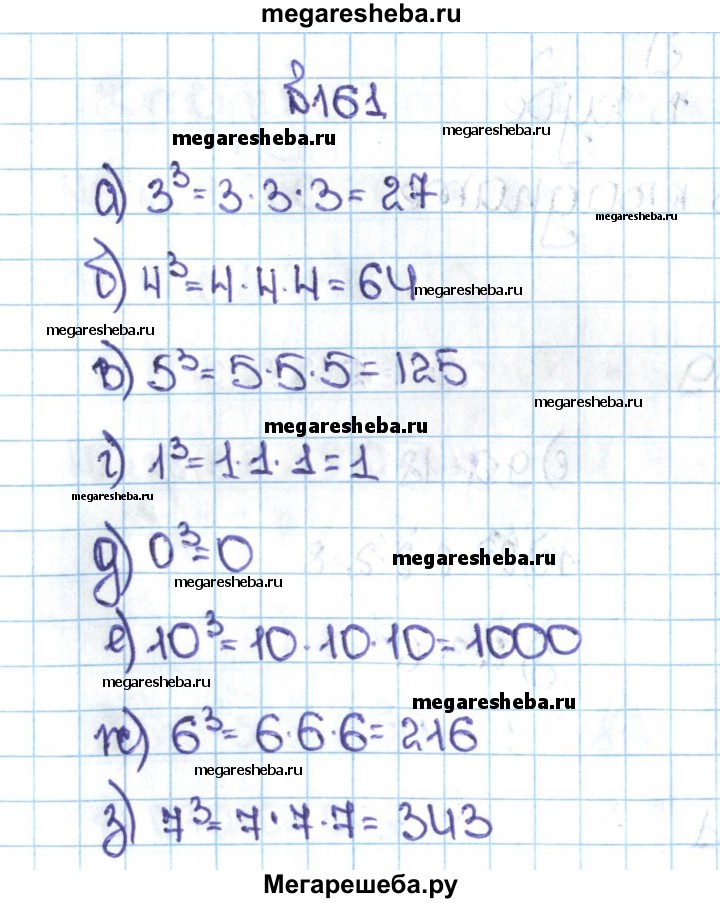 megaresheba.ru
№161
megaresheba.ru
megaresheba.ru
а) 3³ = 3·3·3 = 27
megaresheba.ru
б) 4³ = 4·4·4 = 64
megaresheba.ru
megaresheba.ru
в) 5³ = 5·5·5 = 125
megaresheba.ru
megaresheba.ru
г) 1³ = 1·1·1 = 1
megaresheba.ru
д) 0³ = 0
megaresheba.ru
megaresheba.ru
е) 10³ = 10·10·10 = 1000
megaresheba.ru
megaresheba.ru
ж) 6³ = 6·6·6 = 216
megaresheba.ru
з) 7³ = 7·7·7 = 343
Мегарешеба.ру